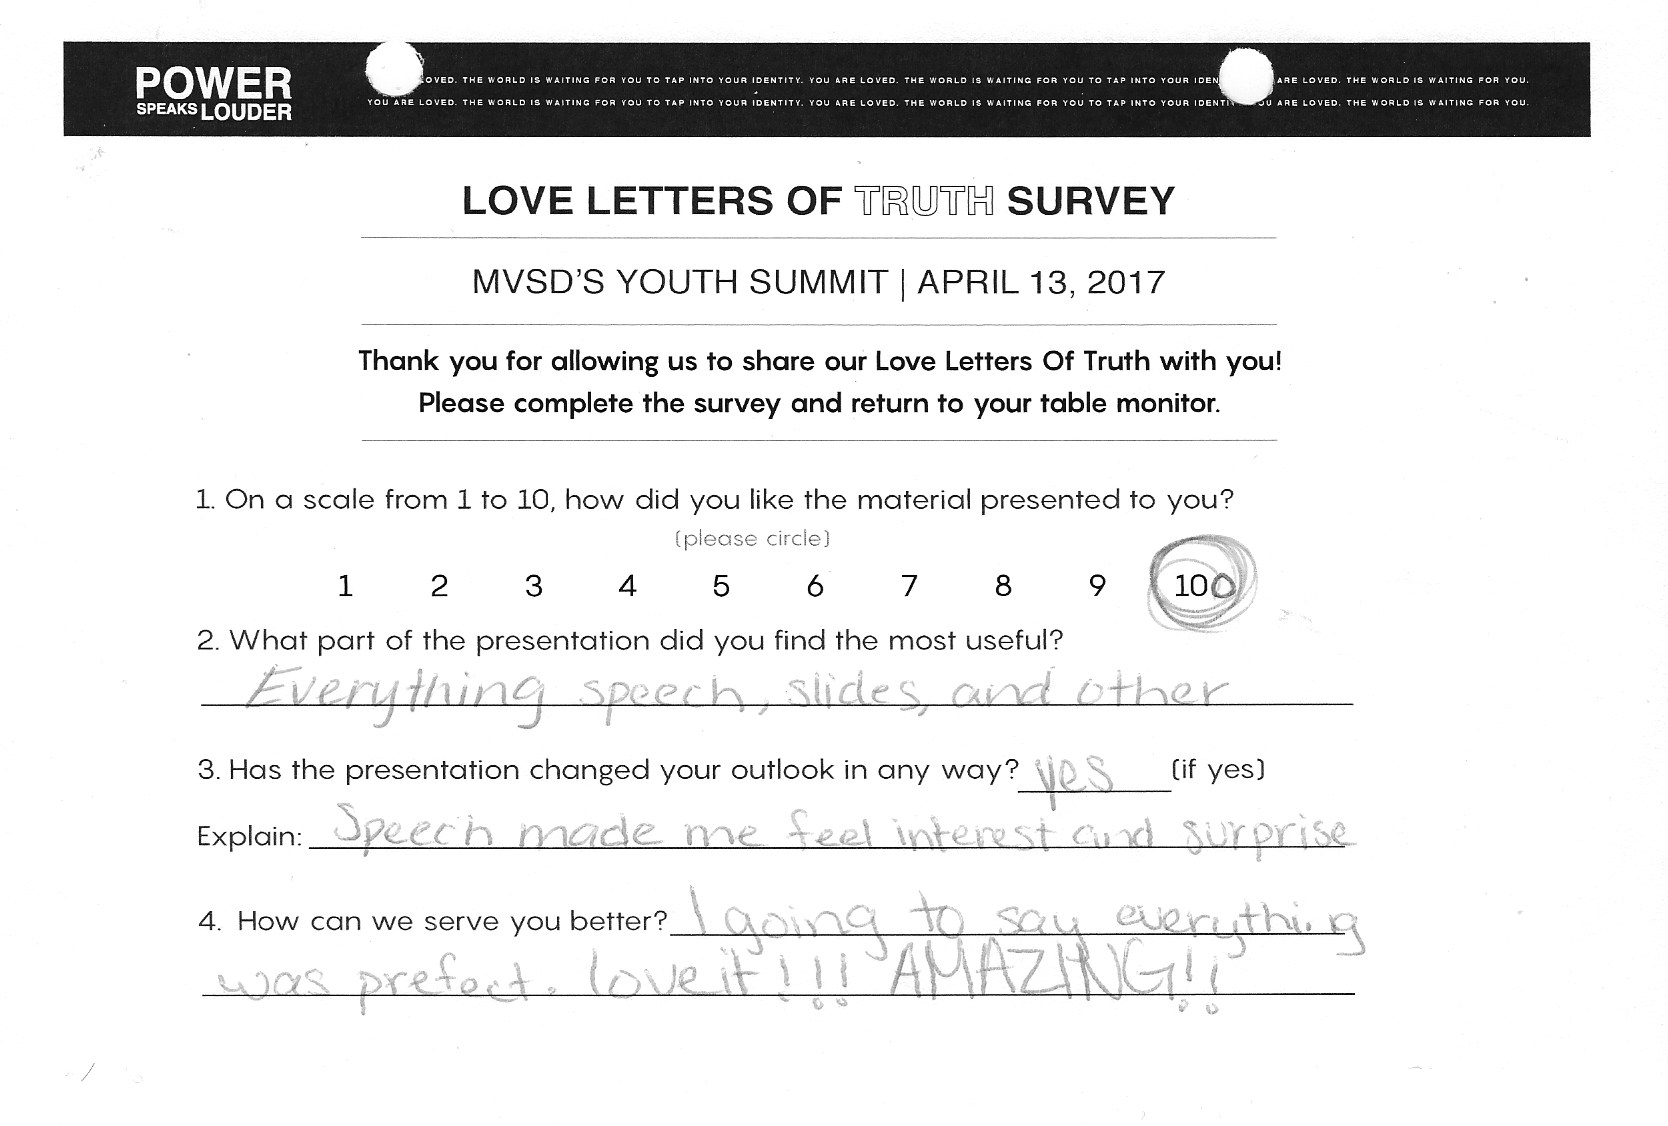 POWER
SPEAKS LOUDER
LOVED. THE WORLD IS WAITING FOR YOU TO TAP INTO YOUR IDENTITY. YOU ARE LOVED. THE WORLD IS WAITING FOR YOU TO TAP INTO YOUR IDEN ARE LOVED. THE WORLD IS WAITING FOR YOU.
YOU ARE LOVED. THE WORLD IS WAITING FOR YOU TO TAP INTO YOUR IDENTITY. YOU ARE LOVED. THE WORLD IS WAITING FOR YOU TO TAP INTO YOUR IDENTI YOU ARE LOVED. THE WORLD IS WAITING FOR YOU.
LOVE LETTERS OF TRUTH SURVEY
MVSD'S YOUTH SUMMIT | APRIL 13, 2017
Thank you for allowing us to share our Love Letters Of Truth with you!
Please complete the survey and return to your table monitor.
1. On a scale from 1 to 10, how did you like the material presented to you?
(please circle)
1 2 3 4 5 6 7 8 9 100
2. What part of the presentation did you find the most useful?
Everything speech, slides, and other
3. Has the presentation changed your outlook in any way? yes (if yes)
Explain: Speech made me feel interest and surprise
4. How can we serve you better? I going to say everything
was prefect. love it!!! AMAZING!!